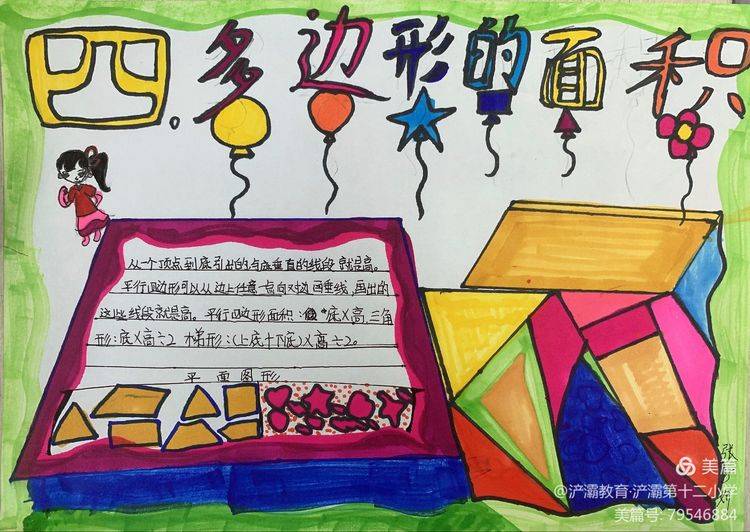 四。多边形的面积
从一个顶点到底引出的与底垂直的线段就是高。
平行四边形可以从边上任意一点向对边画垂线，画出的
这些线段就是高。平行四边形面积：底×高，三角
形：底×高÷2 梯形：(上底+下底)×高÷2。
平面图形
张
美篇
@浐灞教育·浐灞第十二小学
美篇号: 79546884